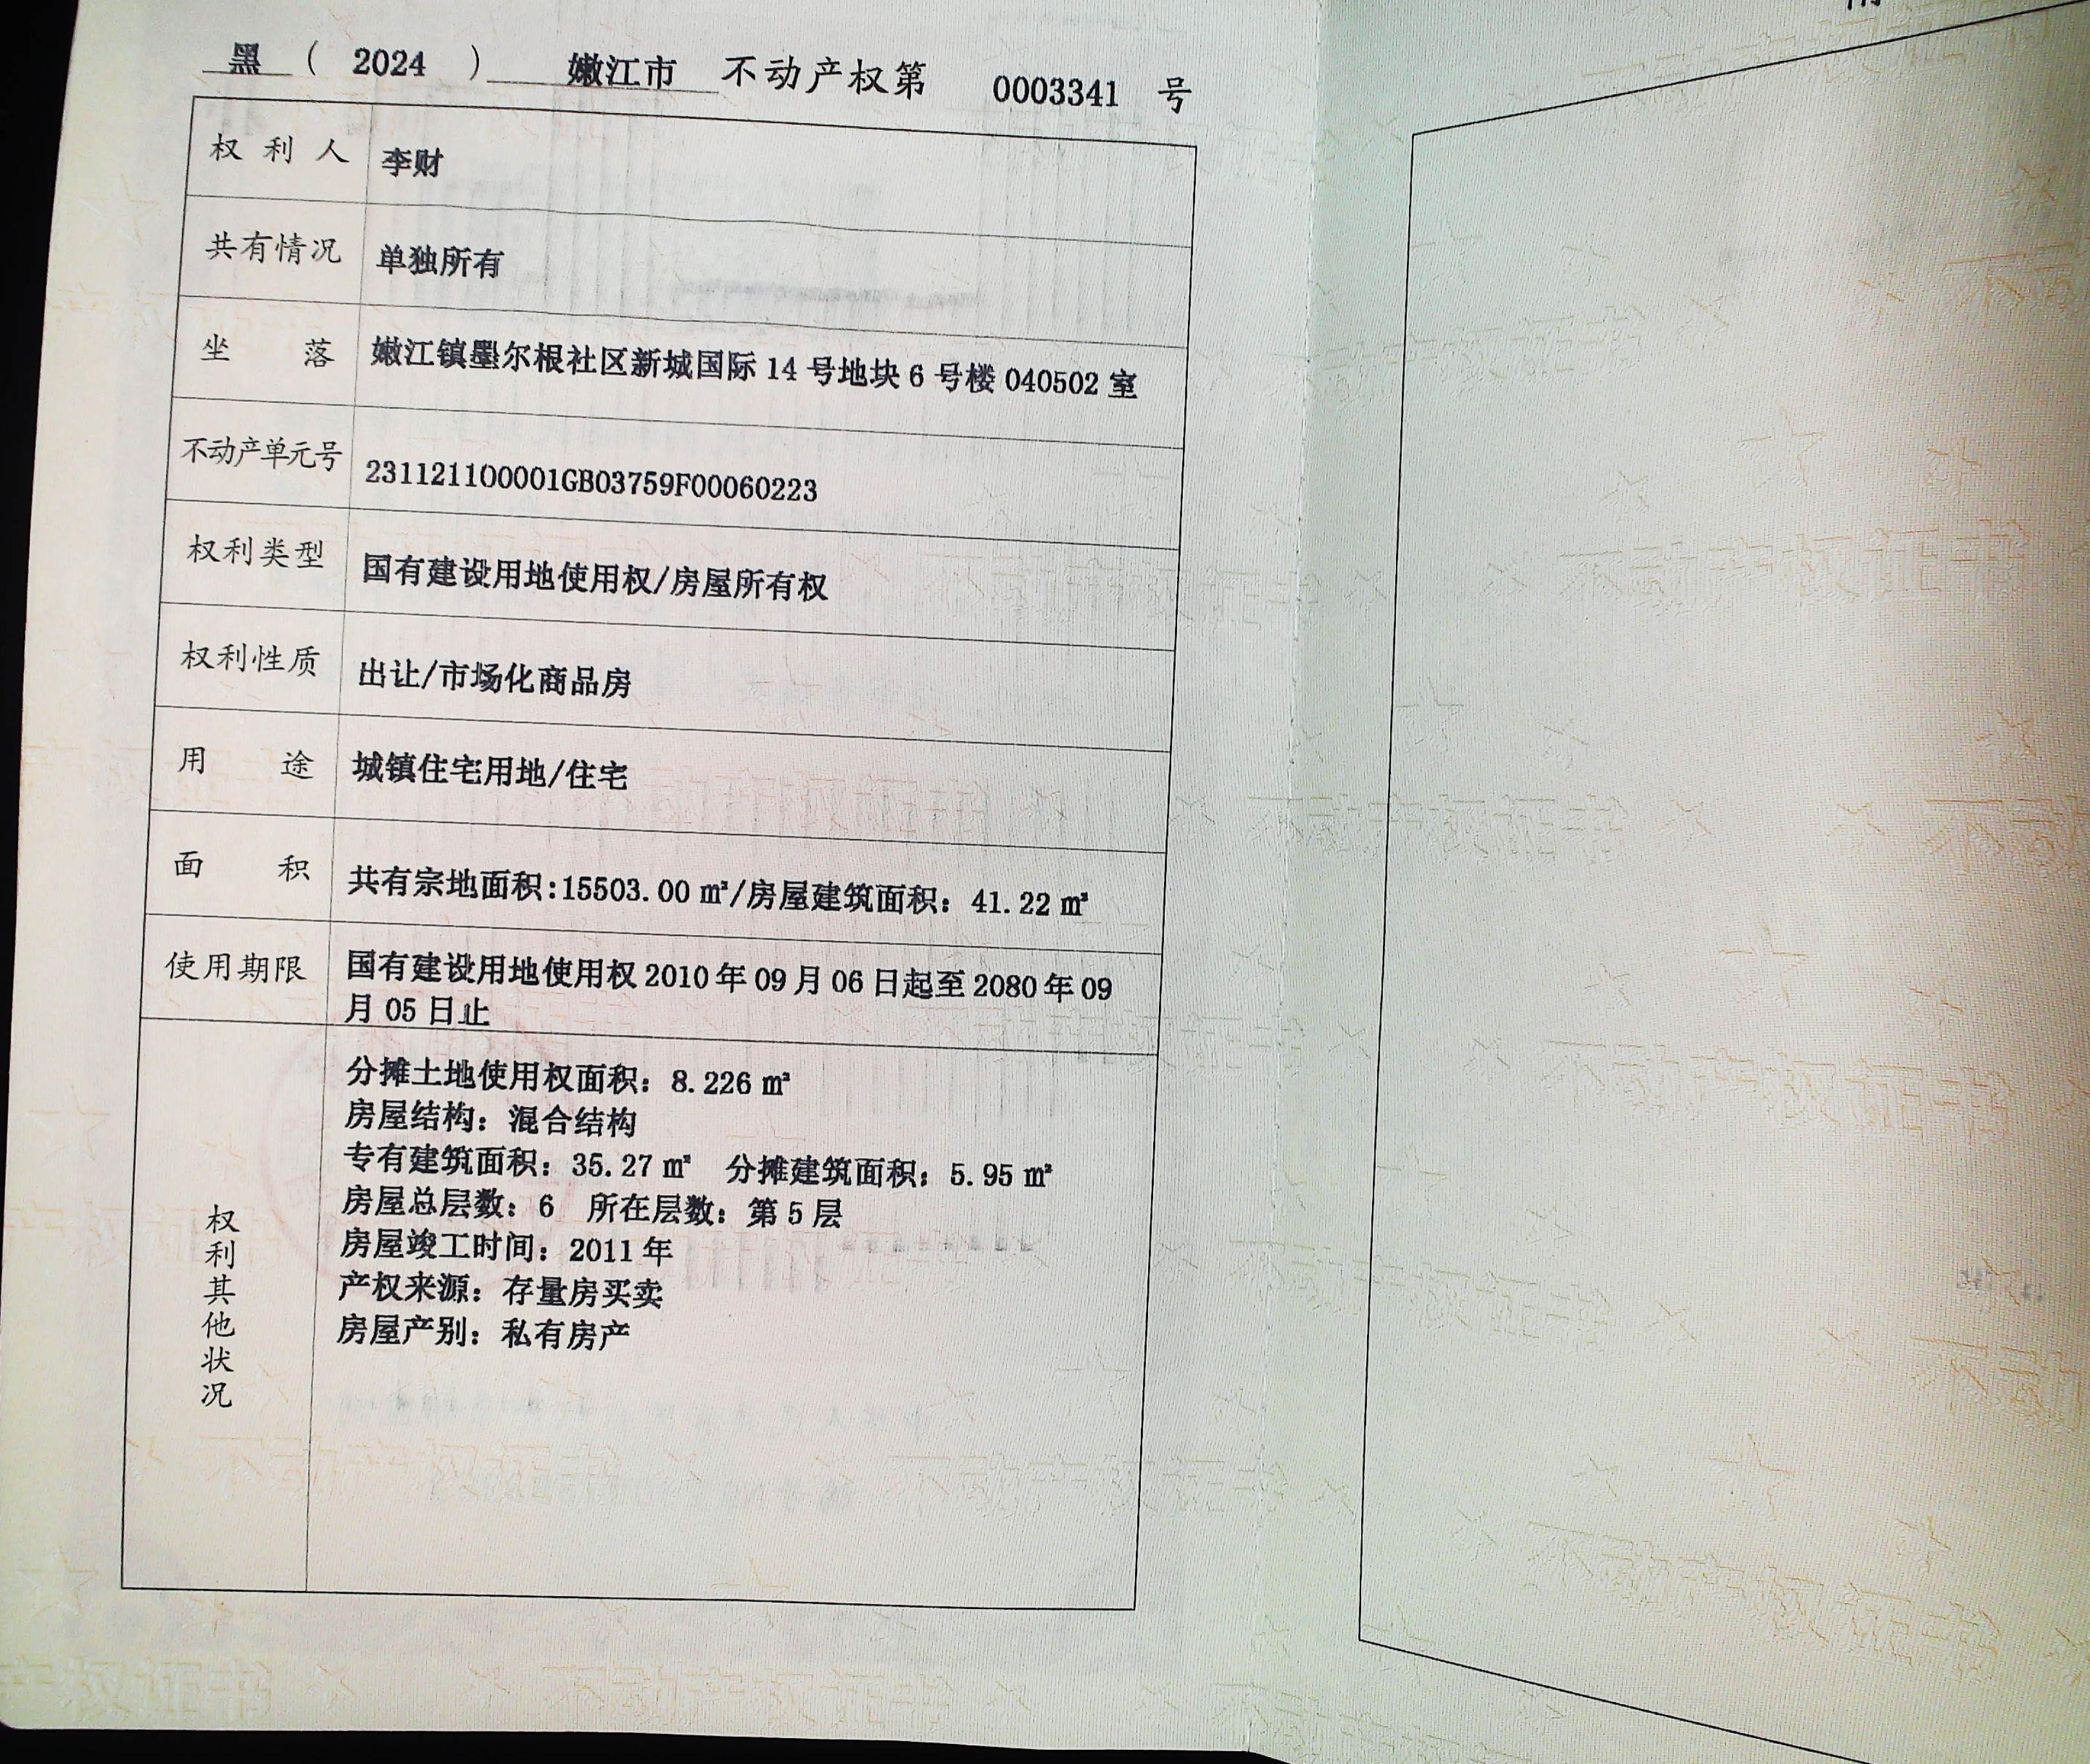 黑 ( 2024 ) 嫩江市 不动产权第 0003341 号
权利人 李财
共有情况 单独所有
坐落 嫩江镇墨尔根社区新城国际 14 号地块 6 号楼 040502 室
不动产单元号 231121100001GB03759F00060223
权利类型 国有建设用地使用权/房屋所有权
权利性质 出让/市场化商品房
用途 城镇住宅用地/住宅
面积 共有宗地面积:15503.00 ㎡/房屋建筑面积：41.22 ㎡
使用期限 国有建设用地使用权 2010 年 09 月 06 日起至 2080 年 09
月 05 日止
权利其他状况
分摊土地使用权面积：8.226 ㎡
房屋结构：混合结构
专有建筑面积：35.27 ㎡ 分摊建筑面积：5.95 ㎡
房屋总层数：6 所在层数：第 5 层
房屋竣工时间：2011 年
产权来源：存量房买卖
房屋产别：私有房产
不动产权证书